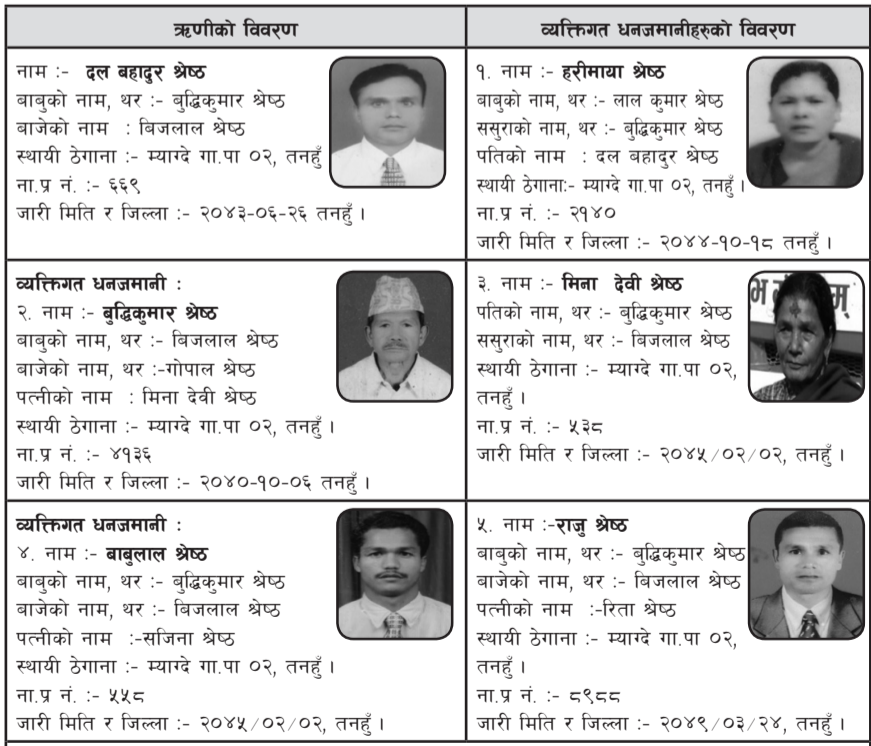 ऋणीको विवरण
व्यक्तिगत धनजमानीहरुको विवरण
नाम :- दल बहादुर श्रेष्ठ
बाबुको नाम, थर :- बुद्धिकुमार श्रेष्ठ
बाजेको नाम : बिजलाल श्रेष्ठ
स्थायी ठेगाना :- म्याग्दे गा.पा ०२, तनहुँ
ना.प्र नं. :- ६६९
जारी मिति र जिल्ला :- २०४३-०६-२६ तनहुँ ।
१. नाम :- हरीमाया श्रेष्ठ
बाबुको नाम, थर :- लाल कुमार श्रेष्ठ
ससुराको नाम, थर :- बुद्धिकुमार श्रेष्ठ
पतिको नाम : दल बहादुर श्रेष्ठ
स्थायी ठेगाना:- म्याग्दे गा.पा ०२, तनहुँ ।
ना.प्र नं. :- २१४०
जारी मिति र जिल्ला :- २०४४-१०-१८ तनहुँ ।
व्यक्तिगत धनजमानी :
२. नाम :- बुद्धिकुमार श्रेष्ठ
बाबुको नाम, थर :- बिजलाल श्रेष्ठ
बाजेको नाम, थर :-गोपाल श्रेष्ठ
पत्नीको नाम : मिना देवी श्रेष्ठ
स्थायी ठेगाना :- म्याग्दे गा.पा ०२, तनहुँ ।
ना.प्र नं. :- ४१३६
जारी मिति र जिल्ला :- २०४०-१०-०६ तनहुँ ।
३. नाम :- मिना देवी श्रेष्ठ
पतिको नाम, थर :- बुद्धिकुमार श्रेष्ठ
ससुराको नाम, थर :- बिजलाल श्रेष्ठ
स्थायी ठेगाना :- म्याग्दे गा.पा ०२,
तनहुँ ।
ना.प्र नं. :- ५३८
जारी मिति र जिल्ला :- २०४५/०२/०२, तनहुँ ।
व्यक्तिगत धनजमानी :
४. नाम :- बाबुलाल श्रेष्ठ
बाबुको नाम, थर :- बुद्धिकुमार श्रेष्ठ
बाजेको नाम, थर :- बिजलाल श्रेष्ठ
पत्नीको नाम :-सजिना श्रेष्ठ
स्थायी ठेगाना :- म्याग्दे गा.पा ०२, तनहुँ ।
ना.प्र नं. :- ५५८
जारी मिति र जिल्ला :- २०४५/०२/०२, तनहुँ ।
५. नाम :-राजु श्रेष्ठ
बाबुको नाम, थर :- बुद्धिकुमार श्रेष्ठ
बाजेको नाम, थर :- बिजलाल श्रेष्ठ
पत्नीको नाम :-रिता श्रेष्ठ
स्थायी ठेगाना :- म्याग्दे गा.पा ०२,
तनहुँ ।
ना.प्र नं. :- ८९८८
जारी मिति र जिल्ला :- २०४९/०३/२४, तनहुँ ।